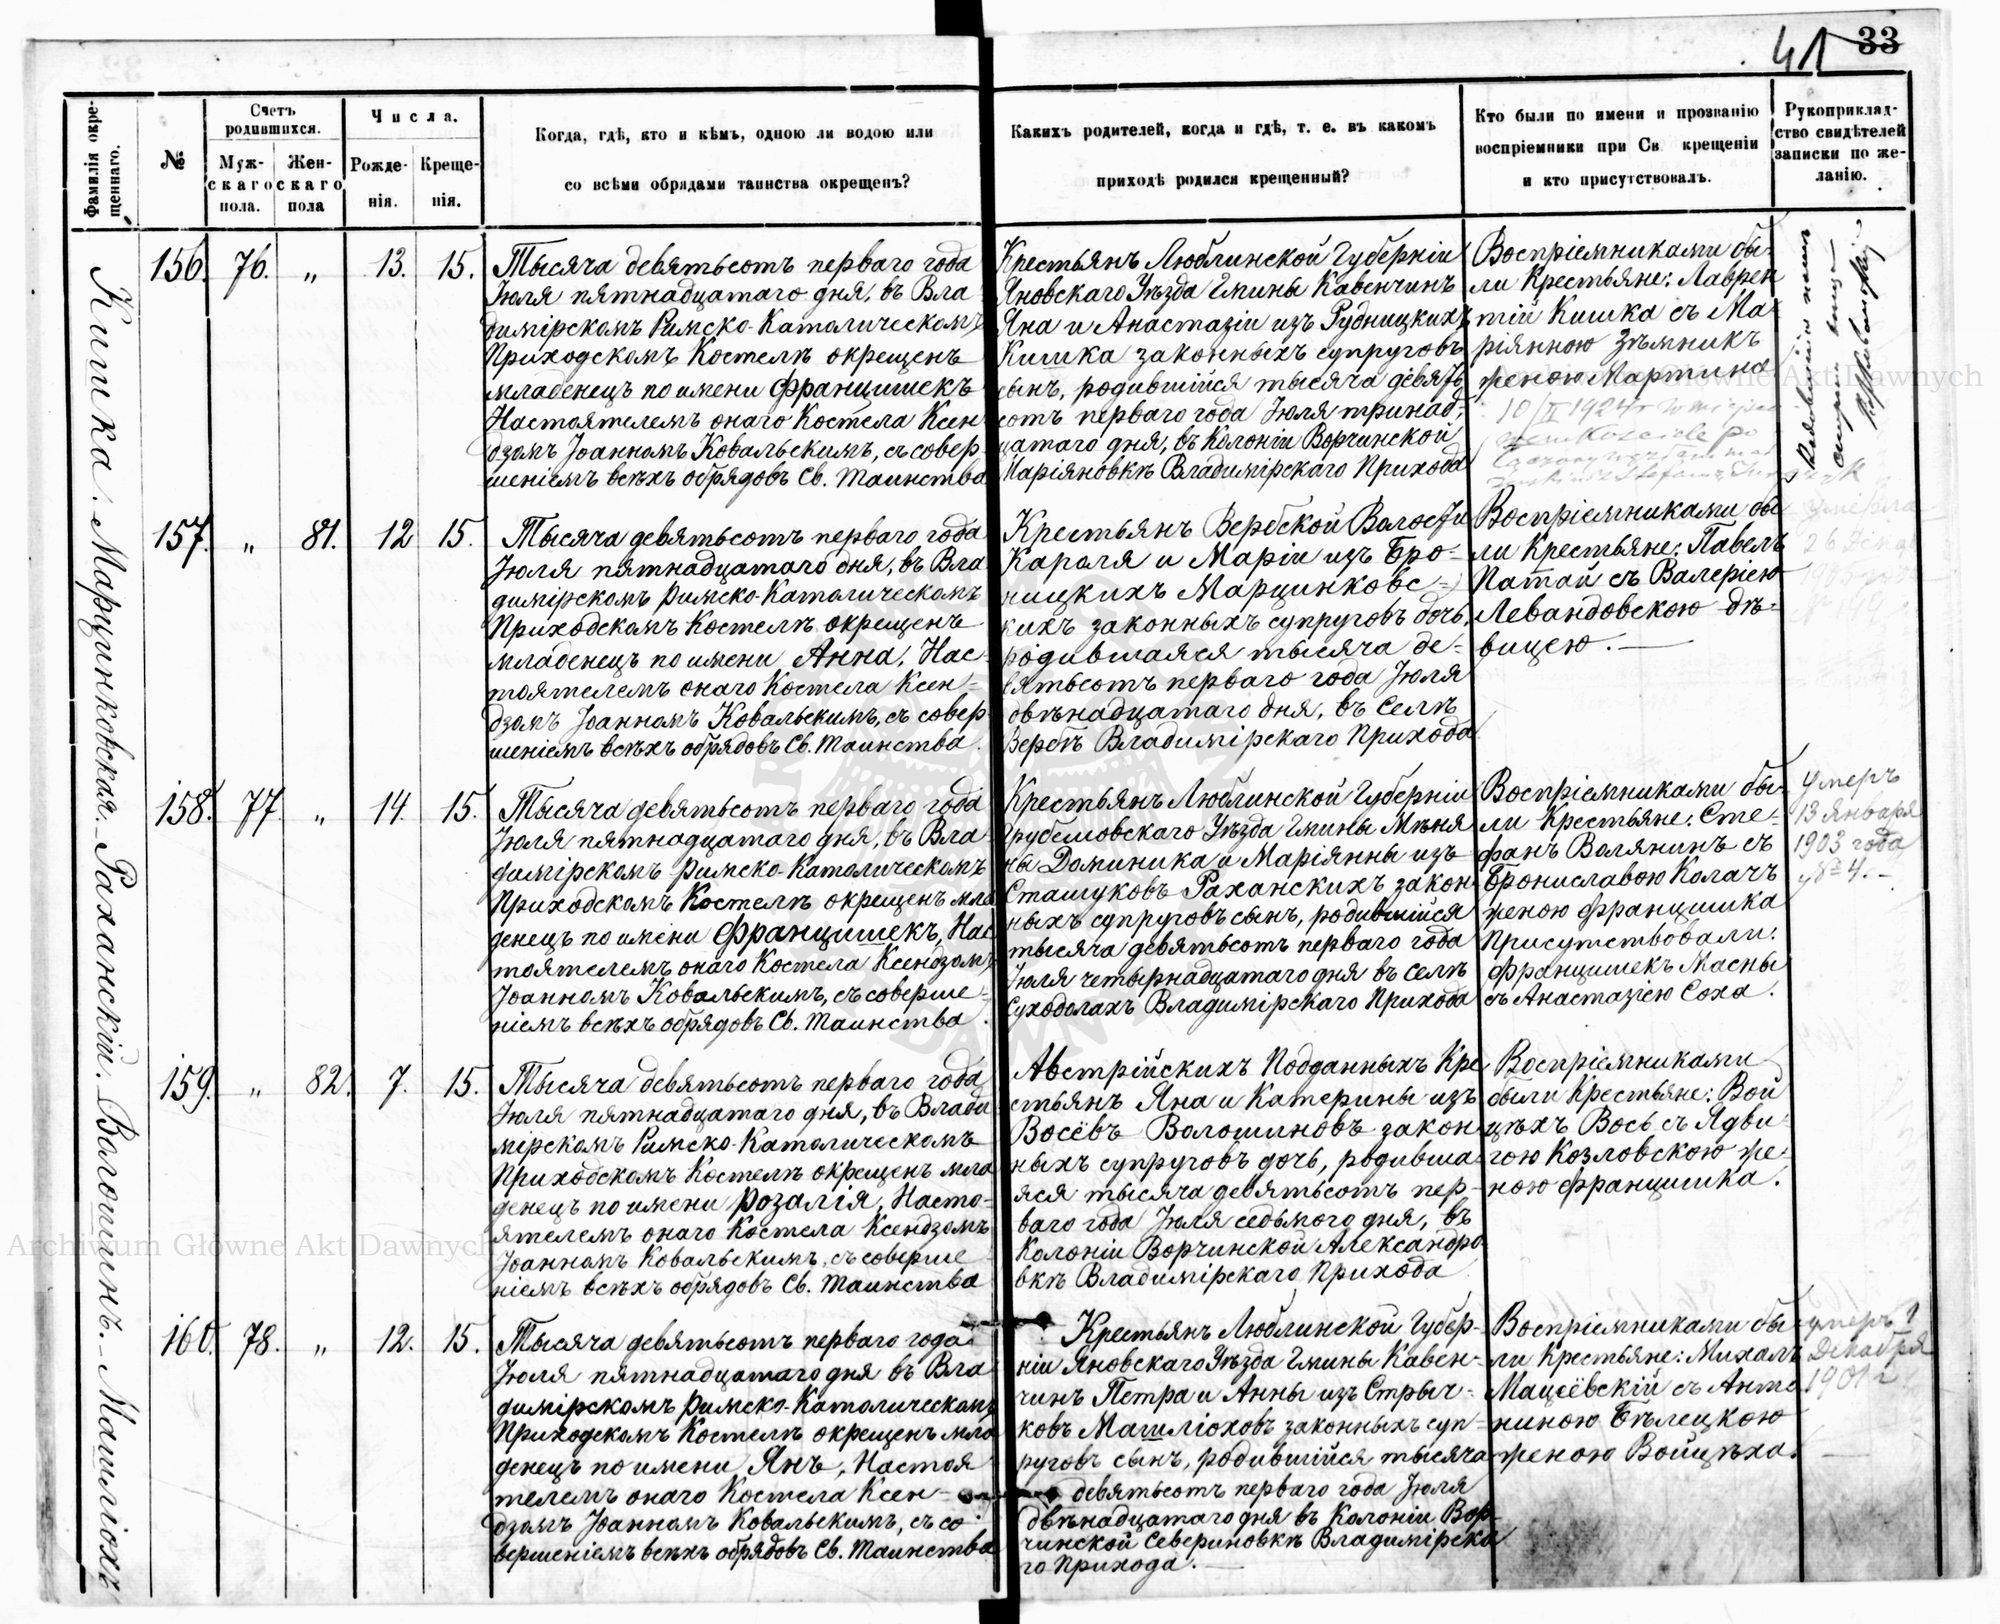 41 33
Фамилія окре-
щеннаго.
№
Счетъ
родившихся.
Муж-
скаго
пола.
Жен-
скаго
пола
Числа.
Рожде-
нія.
Креще-
нія.
Когда, гдѣ, кто и кѣмъ, одною ли водою или
со всѣми обрядами таинства окрещенъ?
Какихъ родителей, когда и гдѣ, т. е. въ какомъ
приходѣ родился крещенный?
Кто были по имени и прозванію
воспріемники при Св. крещеніи
и кто присутствовалъ.
Рукоприклад-
ство свидѣтелей
записки по же-
ланію.
Кишка. Марцинковская. Раханскій. Волошинъ. Машліохъ
156. 76. „ 13. 15.
Тысяча девятьсотъ перваго года
Іюля пятнадцатаго дня, въ Вла-
димірскомъ Римско-Католическомъ
Приходскомъ Костелѣ окрещенъ
младенецъ по имени Францишекъ
Настоятелемъ онаго Костела Ксен-
дзомъ Іоанномъ Ковальскимъ, съ совер-
шеніемъ всѣхъ обрядовъ Св. Таинства
Крестьянъ Люблинской Губерніи
Яновскаго Уѣзда Гмины Кавенчинъ
Яна и Анастазіи изъ Рудницкихъ
Кишка законныхъ супруговъ
сынъ, родившійся тысяча девять
сотъ перваго года Іюля тринад-
цатаго дня, въ Колоніи Ворчинской
Маріяновкѣ Владимірскаго Прихода
Воспріемниками бы-
ли Крестьяне: Лаврен
тій Кишка съ Ма-
ріянною Зѣмникъ
женою Мартина
10/II 1924
157. „ 81. 12 15.
Тысяча девятьсотъ перваго года
Іюля пятнадцатаго дня, въ Вла
димірскомъ Римско-Католическомъ
Приходскомъ Костелѣ окрещенъ
младенецъ по имени Анна, Нас-
тоятелемъ онаго Костела Ксен-
дзомъ Іоанномъ Ковальскимъ, съ совер-
шеніемъ всѣхъ обрядовъ Св. Таинства.
Крестьянъ Вербской Волости
Кароля и Маріи изъ Бро-
ницкихъ Марцинковс-
кихъ законныхъ супруговъ дочь,
родившаяся тысяча де-
вятьсотъ перваго года Іюля
двѣнадцатаго дня, въ Селѣ
Вербѣ Владимірскаго Прихода
Воспріемниками бы
ли Крестьяне: Павелъ
Патай съ Валеріею
Левандовскою дѣ-
вицею.
158. 77. „ 14. 15.
Тысяча девятьсотъ перваго года
Іюля пятнадцатаго дня, въ Вла
димірскомъ Римско-Католическомъ
Приходскомъ Костелѣ окрещенъ мла
денецъ по имени Францишекъ, Нас
тоятелемъ онаго Костела Ксендзомъ
Іоанномъ Ковальскимъ, съ соверше-
ніемъ всѣхъ обрядовъ Св. Таинства.
Крестьянъ Люблинской Губерніи
Грубешовскаго Уѣзда Гмины Мѣня
ны Доминика и Маріянны изъ
Сташуковъ Раханскихъ закон
ныхъ супруговъ сынъ, родившійся
тысяча девятьсотъ перваго года
Іюля четырнадцатаго дня въ Селѣ
Суходолахъ Владимірскаго Прихода
Воспріемниками бы-
ли Крестьяне: Сте-
фанъ Волянинъ съ
Брониславою Колачъ
женою Францишка
Присутствовали:
Францишекъ Масны
съ Анастазіею Соха.
Умеръ
13 Января
1903 года
159. „ 82. 7. 15.
Тысяча девятьсотъ перваго года
Іюля пятнадцатаго дня, въ Влади
мірскомъ Римско-Католическомъ
Приходскомъ Костелѣ окрещенъ мла
денецъ по имени Розалія, Насто-
ятелемъ онаго Костела Ксендзомъ
Іоанномъ Ковальскимъ, съ соверше
ніемъ всѣхъ обрядовъ Св. Таинства
Австрійскихъ Подданныхъ Кре
стьянъ Яна и Катерины изъ
Восёвъ Волошиновъ закон
ныхъ супруговъ дочь, родивша-
яся тысяча девятьсотъ пер-
ваго года Іюля седьмого дня, въ
Колоніи Ворчинской Александро
вкѣ Владимірскаго Прихода
Воспріемниками
были Крестьяне: Вой
цѣхъ Вось съ Ядви-
гою Козловскою же-
ною Францишка.
160. 78. „ 12. 15.
Тысяча девятьсотъ перваго года
Іюля пятнадцатаго дня въ Вла
димірскомъ Римско-Католическомъ
Приходскомъ Костелѣ окрещенъ мла
денецъ по имени Янъ, Настоя
телемъ онаго Костела Ксен-
дзомъ Іоанномъ Ковальскимъ, съ со
вершеніемъ всѣхъ обрядовъ Св. Таинства
Крестьянъ Люблинской Губер-
ніи Яновскаго Уѣзда Гмины Кавен-
чинъ Петра и Анны изъ Стрыч-
ковъ Машліоховъ законныхъ суп-
руговъ сынъ, родившійся тысяча
девятьсотъ перваго года Іюля
двѣнадцатаго дня въ Колоніи Вор-
чинской Севериновкѣ Владимірска
го Прихода.
Воспріемниками бы
ли Крестьяне: Михалъ
Мацеёвскій съ Анто
ниною Бѣлецкою
женою Войцѣха.
умеръ 9
Декабря
1901 г
Archiwum Główne Akt Dawnych
Archiwum Główne Akt Dawnych